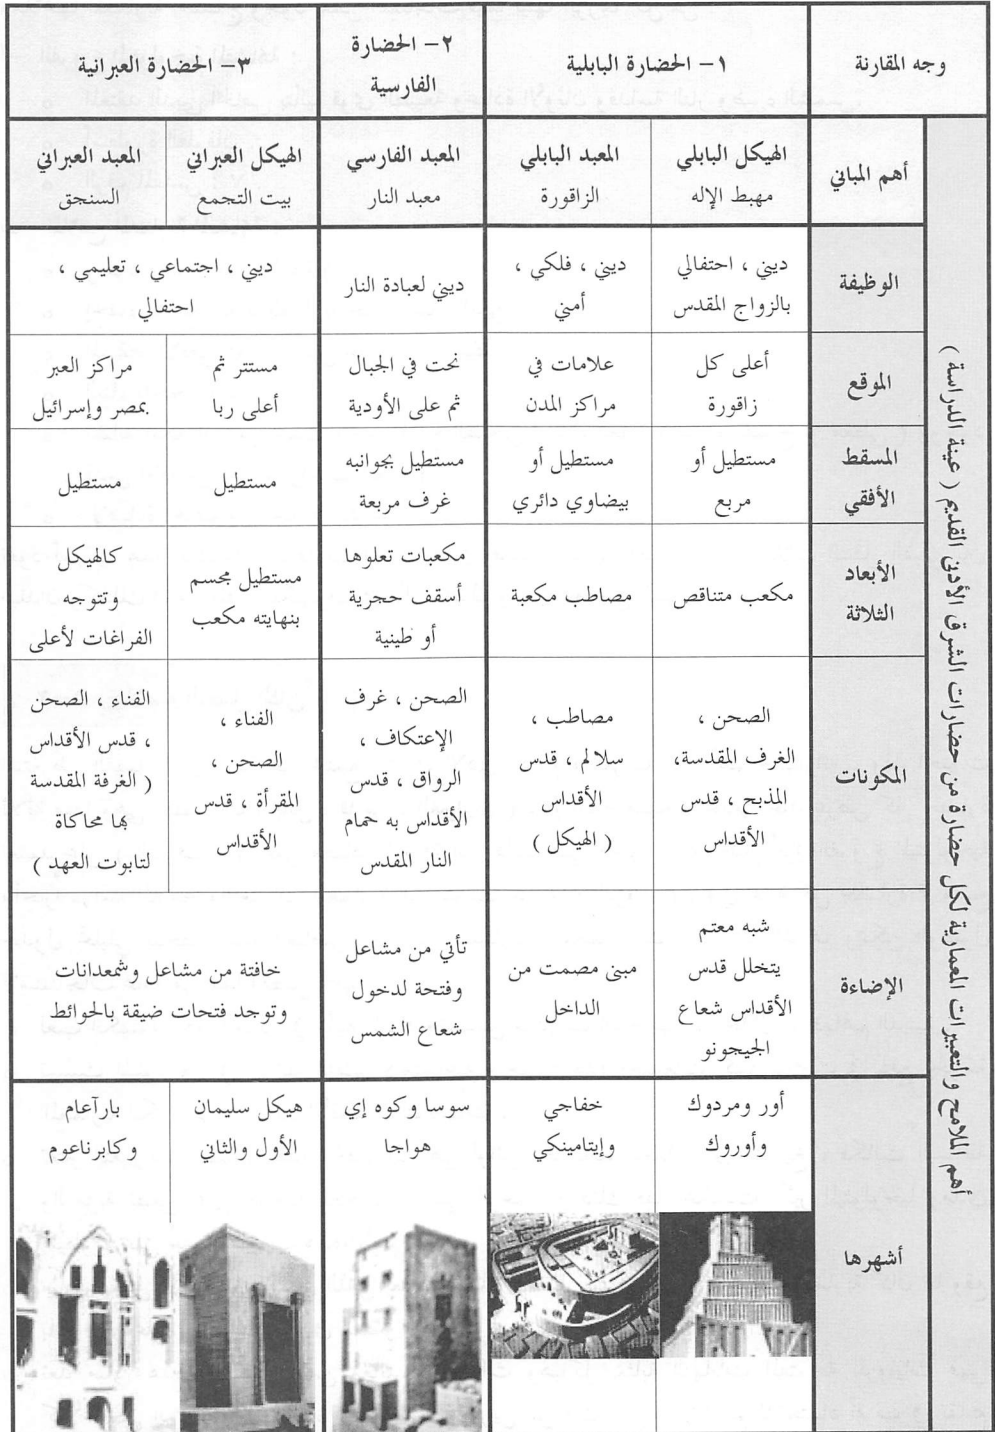 وجه المقارنة
١- الحضارة البابلية
٢- الحضارة
الفارسية
٣- الحضارة العبرانية
أهم الملامح والتعبيرات المعمارية لكل حضارة من حضارات الشرق الأدنى القديم ( عينة الدراسة )
أهم المباني
الهيكل البابلي
مهبط الإله
المعبد البابلي
الزاقورة
المعبد الفارسي
معبد النار
الهيكل العبراني
بيت التجمع
المعبد العبراني
السنحق
الوظيفة
ديني ، احتفالي
بالزواج المقدس
ديني ، فلكي ،
أمني
ديني لعبادة النار
ديني ، اجتماعي ، تعليمي ،
احتفالي
الموقع
أعلى كل
زاقورة
علامات في
مراكز المدن
نحت في الجبال
ثم على الأودية
مستتر ثم
أعلى ربا
مراكز العبر
بمصر وإسرائيل
المسقط
الأفقي
مستطيل أو
مربع
مستطيل أو
بيضاوي دائري
مستطيل بجوانبه
غرف مربعة
مستطيل
مستطيل
الأبعاد
الثلاثة
مكعب متناقص
مصاطب مكعبة
مكعبات تعلوها
أسقف حجرية
أو طينية
مستطيل مجسم
بنهايته مكعب
كالهيكل
وتتوجه
الفراغات لأعلى
المكونات
الصحن ،
الغرف المقدسة،
المذبح ، قدس
الأقداس
مصاطب ،
سلالم ، قدس
الأقداس
( الهيكل )
الصحن ، غرف
الإعتكاف ،
الرواق ، قدس
الأقداس به حمام
النار المقدس
الفناء ،
الصحن ،
المقرأة ، قدس
الأقداس
الفناء ، الصحن
، قدس الأقداس
( الغرفة المقدسة
بها محاكاة
لتابوت العهد )
الإضاءة
شبه معتم
يتخلل قدس
الأقداس شعاع
الجيجونو
مبنى مصمت من
الداخل
تأتي من مشاعل
وفتحة لدخول
شعاع الشمس
خافتة من مشاعل وشمعدانات
وتوجد فتحات ضيقة بالحوائط
أشهرها
أور ومردوك
وأوروك
خفاجي
وإيتامينكي
سوسا وكوه إي
هواجا
هيكل سليمان
الأول والثاني
بارآعام
وكابرناعوم